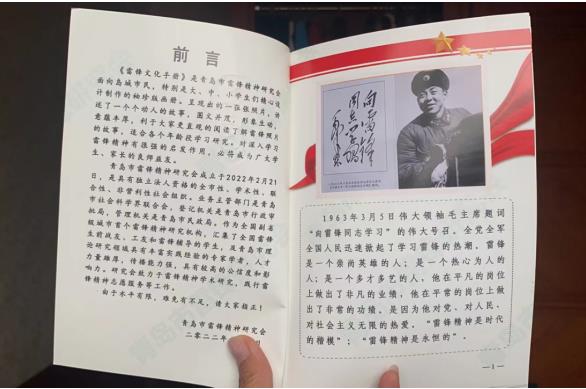 前言
《雷锋文化手册》是青岛市雷锋精神研究会
面向岛城市民，特别是大、中、小学生们精心设
计制作的袖珍版画册。呈现出的一张张照片，讲
述了一个个动人的故事。图文并茂，形象生动，
意蕴丰厚，利于大家更直观的阅读了解雷锋照片
的故事，适合各个年龄段学习研究。对深入学习
雷锋精神有很强的启发作用，必将成为广大学
生、家长的良师益友。
青岛市雷锋精神研究会成立于2022年2月21
日，是具有独立法人资格的全市性、学术性、联
合性、非营利性社会组织。业务主管部门是青岛
市社会科学界联合会，登记机关是青岛市行政审
批局，管理机关是青岛市民政局。作为全国副省
级城市首个雷锋精神研究机构，汇集了全国雷锋
生前战友、工友和雷锋辅导的学生，及青岛市理
论研究领域具有丰富实践经验的专家学者，人才
力量雄厚，传播能力强，具有较高的公信度和影
响力。研究会致力于雷锋精神学术研究，践行雷
锋精神志愿服务等工作。
由于水平有限，难免有不足，请大家指正！
青岛市雷锋精神研究会
二〇二二年
向雷锋
同志学习
毛泽东
1963年3月5日伟大领袖毛主席题词
“向雷锋同志学习”的伟大号召。全党全军
全国人民迅速掀起了学习雷锋的热潮。雷锋
是一个崇尚英雄的人；是一个热心为人的
人；是一个多才多艺的人，他在平凡的岗位
上做出了非凡的业绩，他在平常的岗位上做
出了非常的功绩。是因为他对党、对人民、
对社会主义无限的热爱。“雷锋精神是时代
的楷模”；“雷锋精神是永恒的”。
—1—